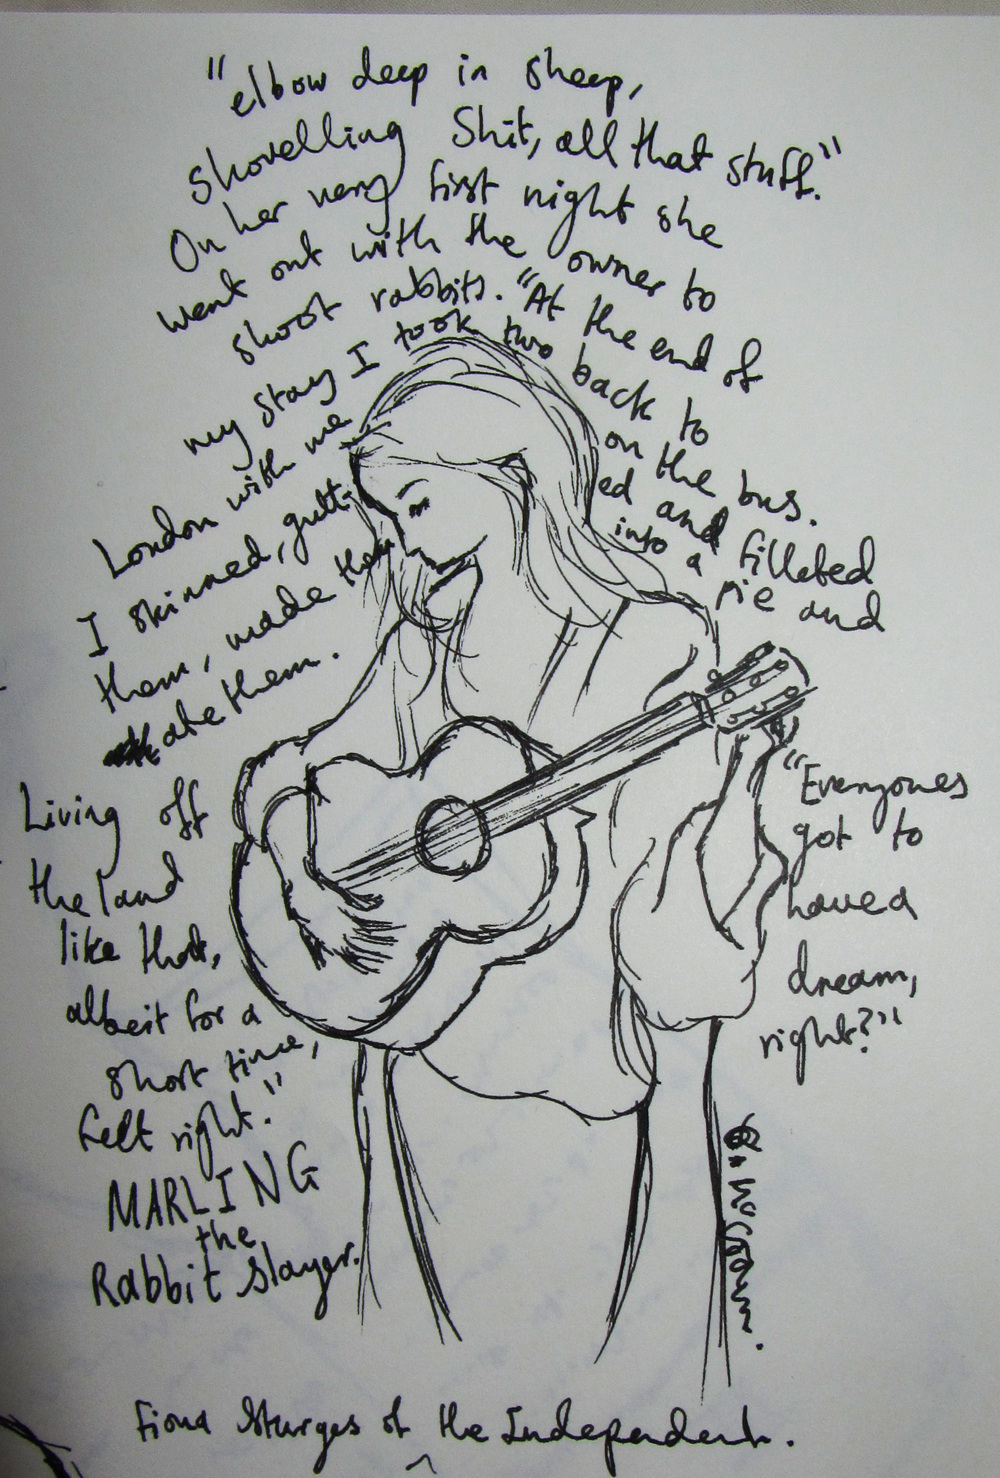 "elbow deep in sheep,
shovelling Shit, all that stuff."
On her very first night she
went out with the owner to
shoot rabbits. "At the end of
my stay I took two back to
London with me on the bus.
I skinned, gutt-ed and filleted
them, made them into a pie and
ate them.
Living off
the land
like that,
albeit for a
short time,
felt right."
MARLING
the
Rabbit slayer.
"Everyones
got to
have a
dream,
right?"
Fiona Sturges of the Independent.